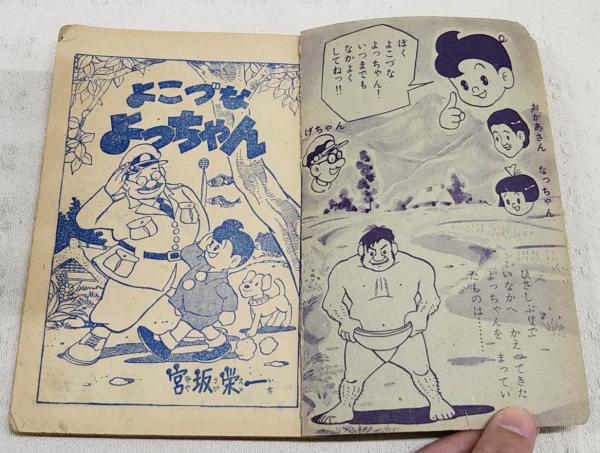 よこづな
よっちゃん
宮坂栄一
みやさかえいいち
ぼく
よこづな
よっちゃん!
いつまでも
なかよく
してねっ!!
おかあさん
なっちゃん
げちゃん
ひさしぶりで
いなかへ かえってきた
よっちゃんを まってい
たものは………